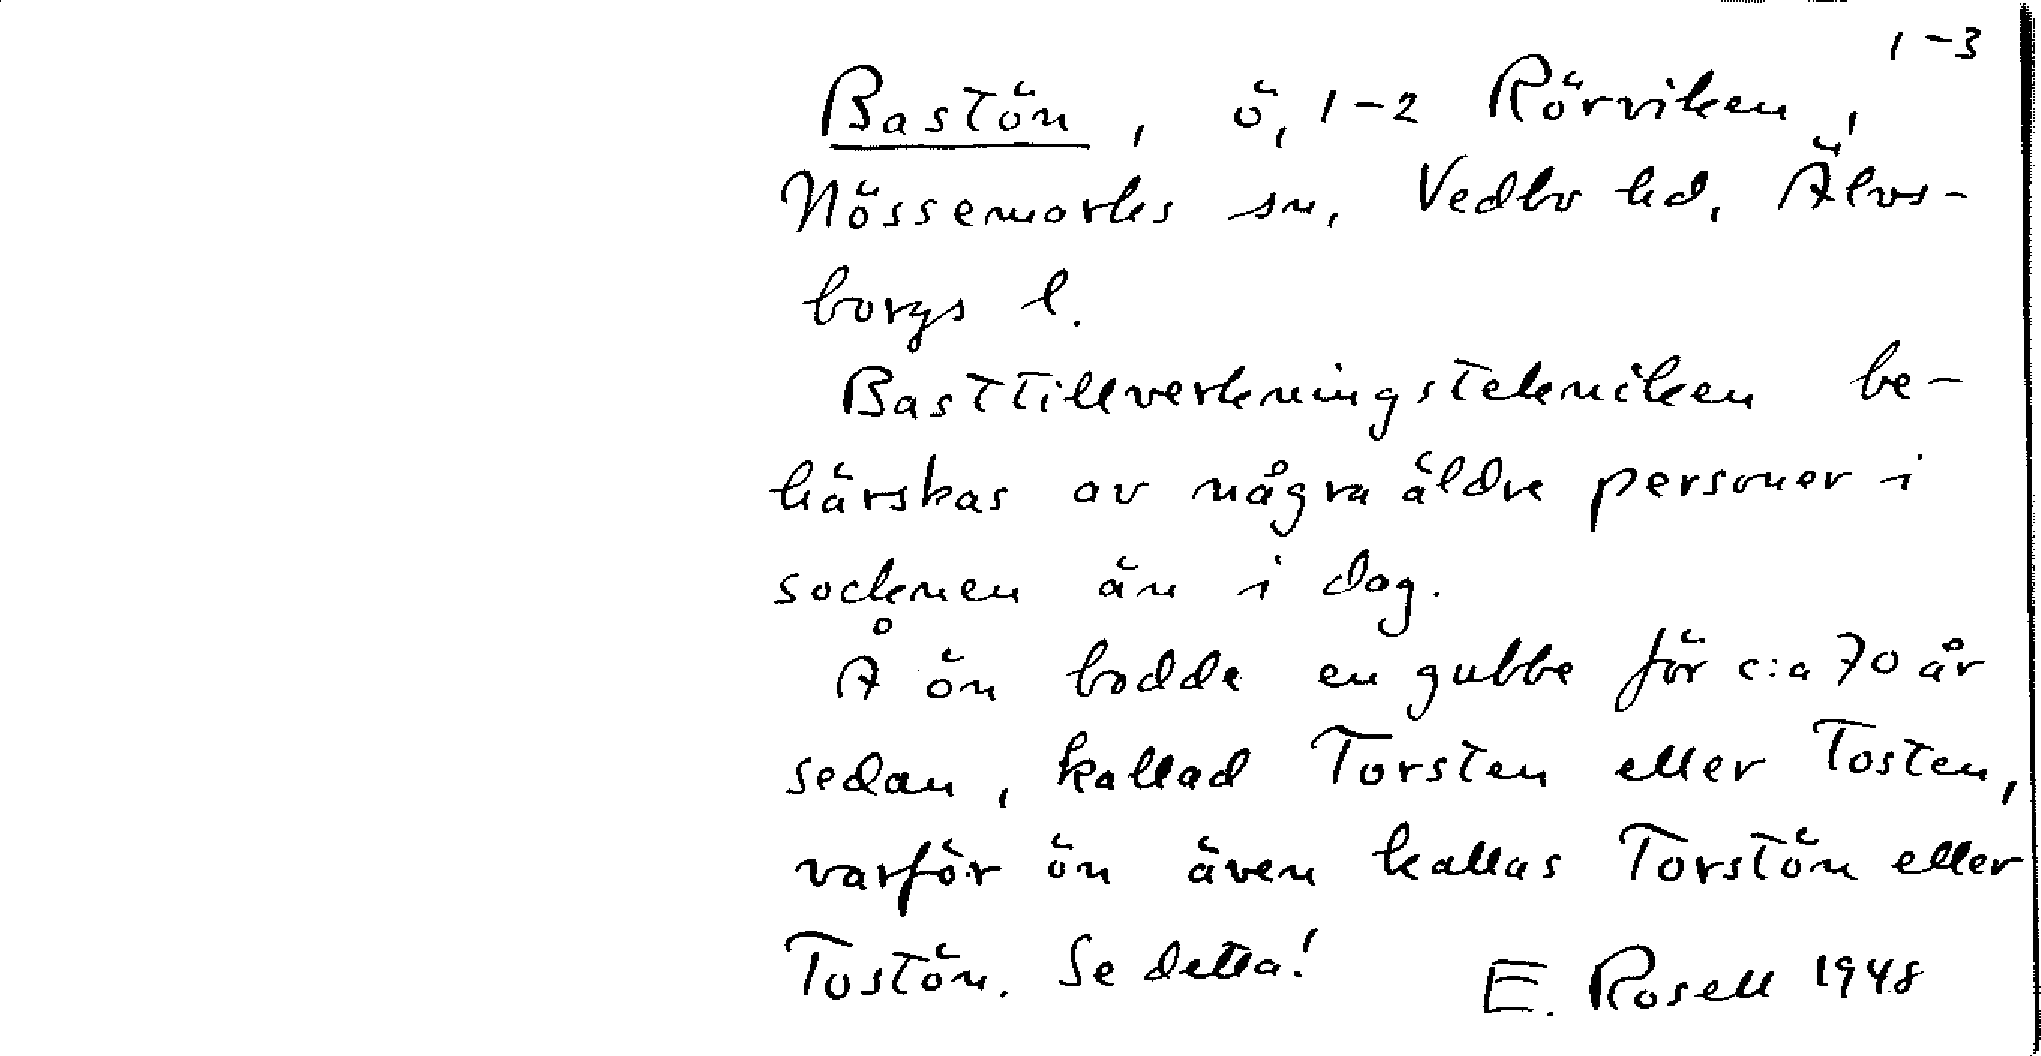 1-3
Bastön, ö, 1-2 Rörviken,
Nössemarks sn, Vedbo hd, Älvs-
borgs l.
Basttillverkningstekniken be-
härskas av några äldre personer i
socknen än i dag.
Å ön bodde en gubbe för c:a 70 år
sedan, kallad Torsten eller Tosten,
varför ön även kallas Torstön eller
Tostön. Se detta!
E. Rosell 1948